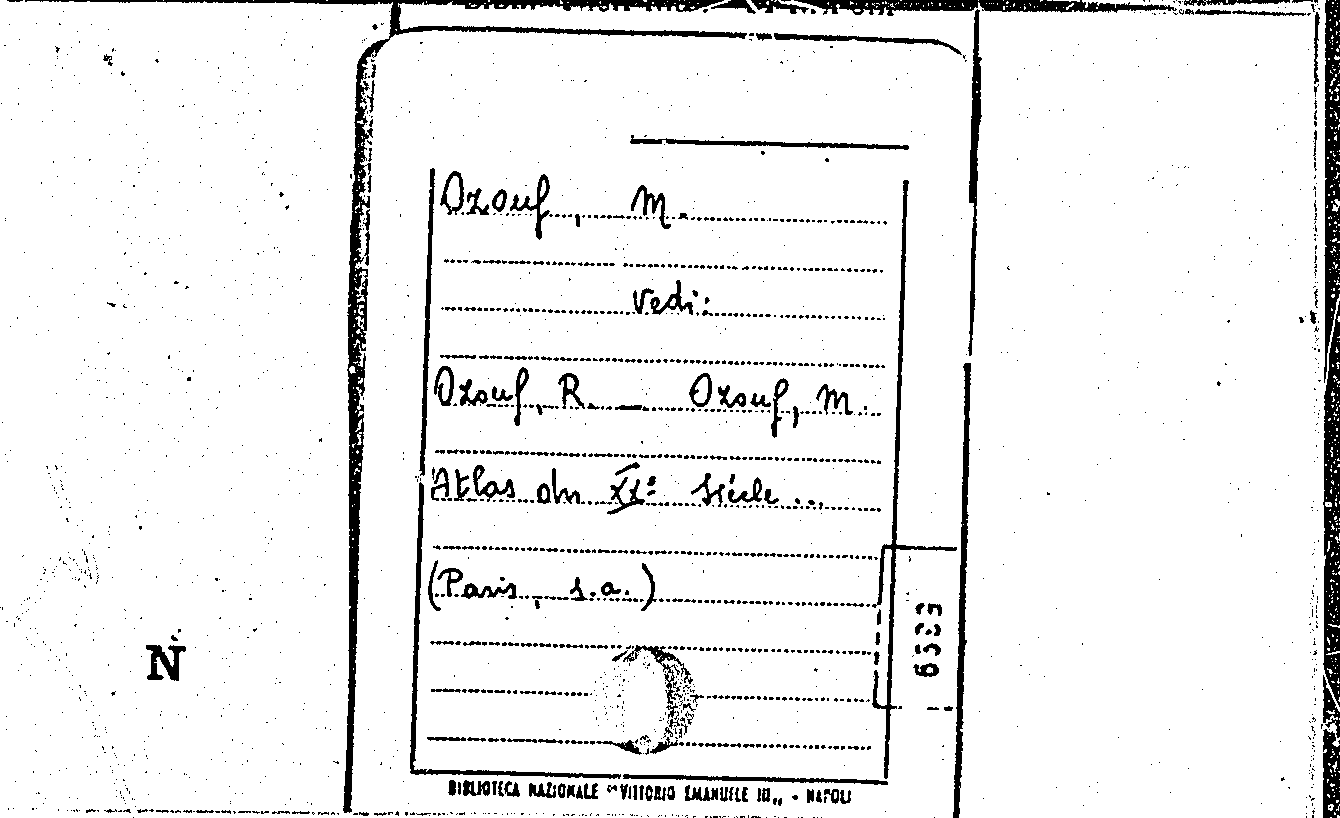 Ozouf, M.
vedi:
Ozouf, R. — Ozouf, M.
Atlas du XXe Siécle...
(Paris, s.a.)
N
BIBLIOTECA NAZIONALE "VITTORIO EMANUELE III„ - NAPOLI